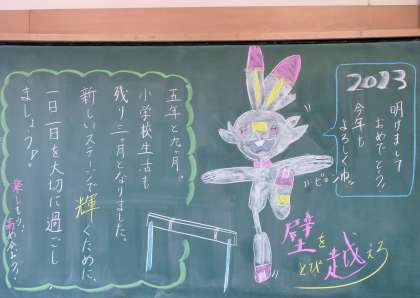 2023
明けまして
おめでとう。
今年も
よろしくね。
ピョン
壁を
とび越えろ
五年と九ヶ月。
小学校生活も
残り三ヶ月となりました。
新しいステージで輝くために、
一日一日を大切に過ごし
ましょう♪。
楽しもう。